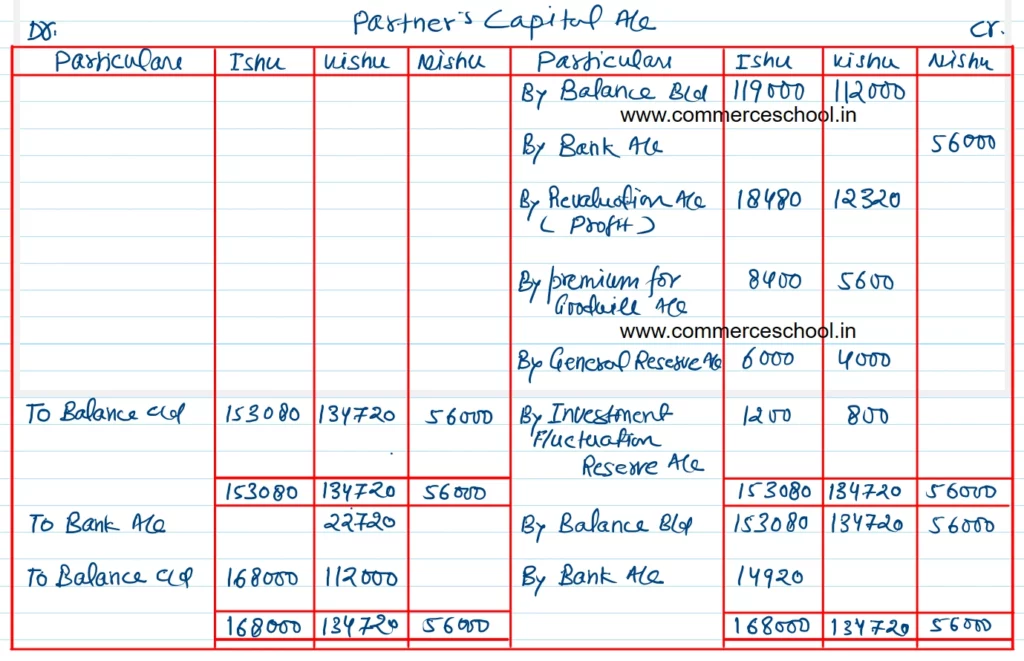 Partner's Capital A/c
Dr. Cr.
Particulars Ishu Vishu Nishu Particulars Ishu Vishu Nishu
By Balance B/d 119000 112000
www.commerceschool.in
By Bank A/c 56000
By Revaluation A/c 18480 12320
( Profit )
By premium for 8400 5600
Goodwill A/c
www.commerceschool.in
By General Reserve A/c 6000 4000
To Balance c/d 153080 134720 56000 By Investment 1200 800
Fluctuation
Reserve A/c
153080 134720 56000 153080 134720 56000
To Bank A/c 22720 By Balance B/d 153080 134720 56000
To Balance c/d 168000 112000 By Bank A/c 14920
168000 134720 56000 168000 134720 56000